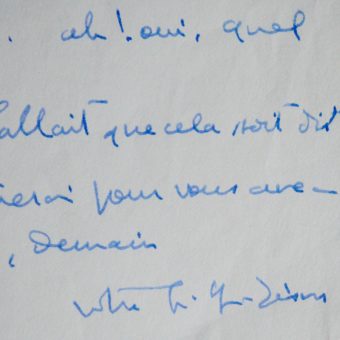 . ah! oui, quel
fallait que cela soit dit
ierai pour vous ave-
, demain
votre